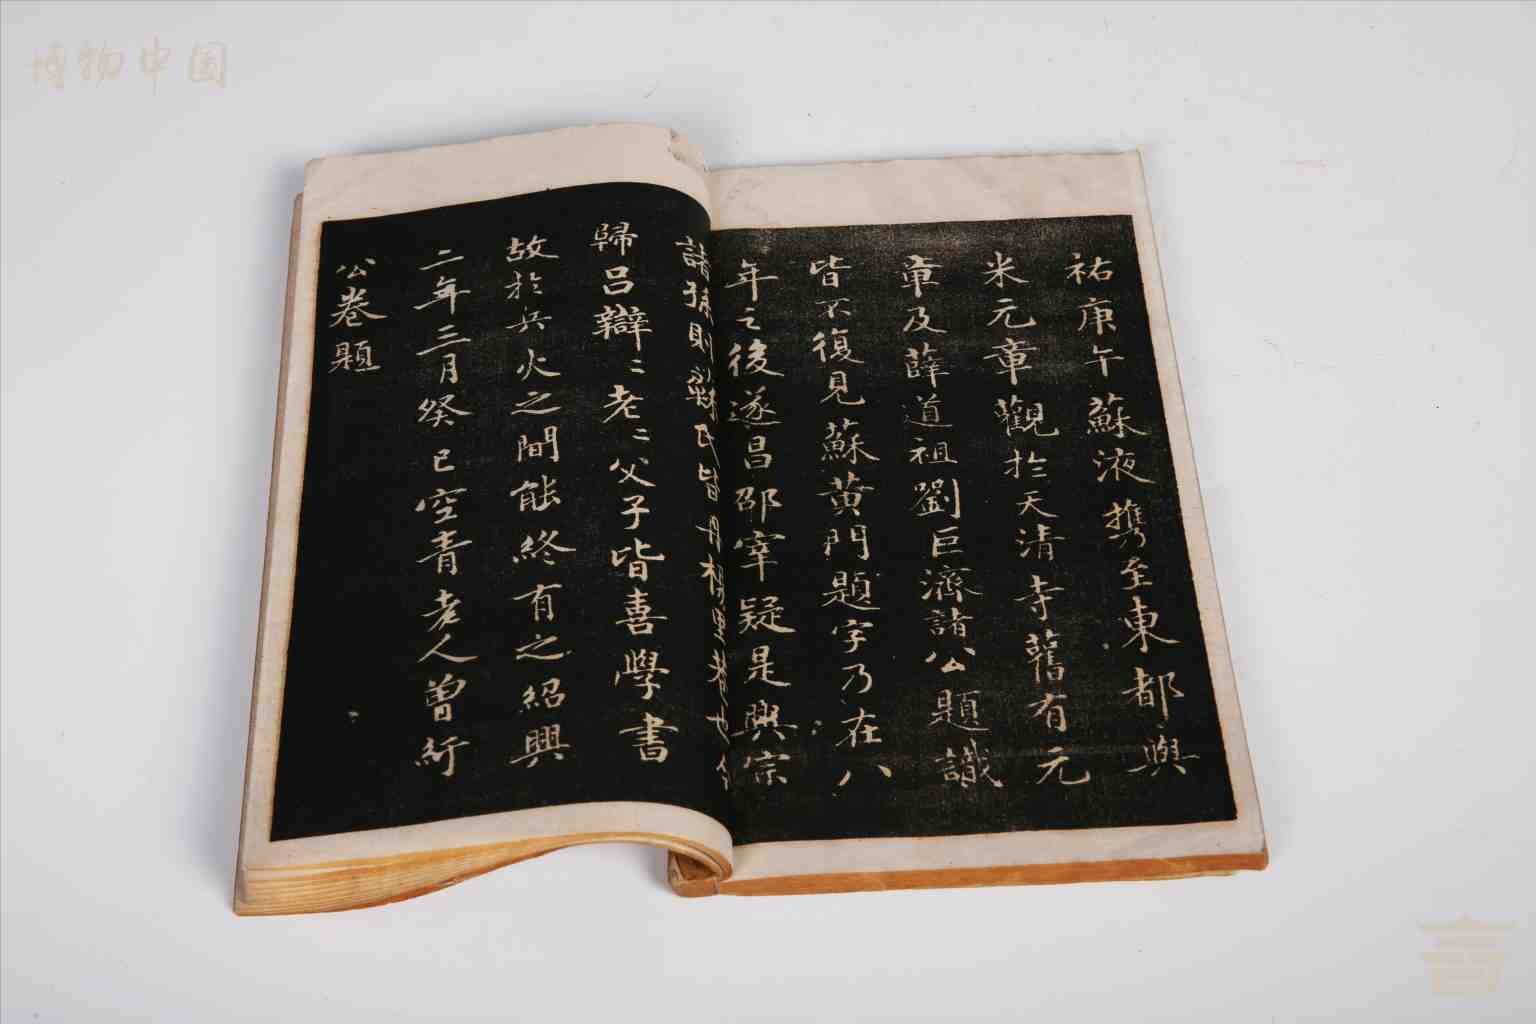 博物中国
祐庚午蘇液攜至東都與
米元章觀於天清寺舊有元
章及薛道祖劉巨濟諸公題識
皆不復見蘇黃門題字乃在八
年之後遂昌邵宰疑是興宗
諸孫則蘇氏皆丹楊里巷也今
歸呂辯辯老老父子皆喜學書
故於兵火之間能終有之紹興
二年三月癸巳空青老人曾紆
公卷題